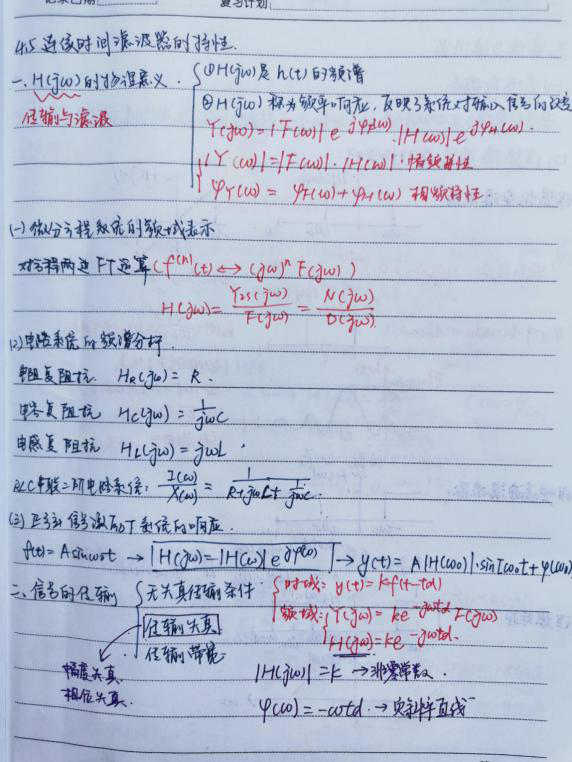 复习计划
4.5 连续时间滤波器的特性.
一、H(jω)的物理意义. ①H(jω)是h(t)的频谱
传输与滤波 ②H(jω)称为频率响应, 反映了系统对输入信号的
Y(jω)=|F(ω)|e^{jφF(ω)}.|H(ω)|e^{jφH(ω)}.
|Y(ω)|=|F(ω)|·|H(ω)| 幅频特性
φY(ω) = φF(ω)+φH(ω) 相频特性
(一)微分方程系统的频域表示
对方程两边FT运算(f^{(n)}(t)↔(jω)^n F(jω))
H(jω)= Yzs(jω)/F(jω) = N(jω)/D(jω).
(2)电路系统的频谱分析
电阻复阻抗. HR(jω)=R.
电容复阻抗 HC(jω)=1/jωC
电感复阻抗 HL(jω)=jωL.
RLC串联二阶电路系统: I(ω)/X(ω) = 1/(R+jωL+1/jωC).
(3)正弦信号激励下系统的响应.
f(t)=Asinω0t → H(jω)=|H(ω)|e^{jφ(ω)} → y(t)=A|H(ω0)|·sin[ω0t+φ(ω0)
二、信号的传输 无失真传输条件 时域: y(t)=kf(t-td)
频域: Y(jω)=ke^{-jωtd}F(jω)
传输失真 H(jω)=ke^{-jωtd}.
传输带宽
幅度失真. |H(jω)|=k →非零常数.
相位失真. φ(ω)=-ωtd.→负斜率直线